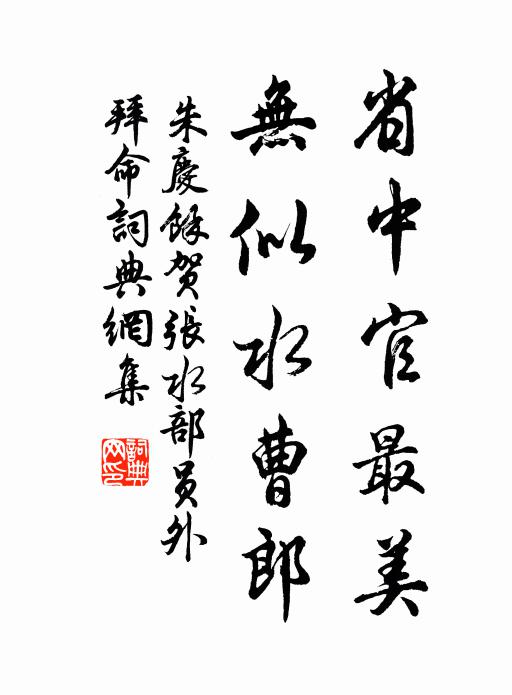 省中官最美
無似水曹郎
朱慶餘賀張水部員外
拜命詞典網集
詞典
网印